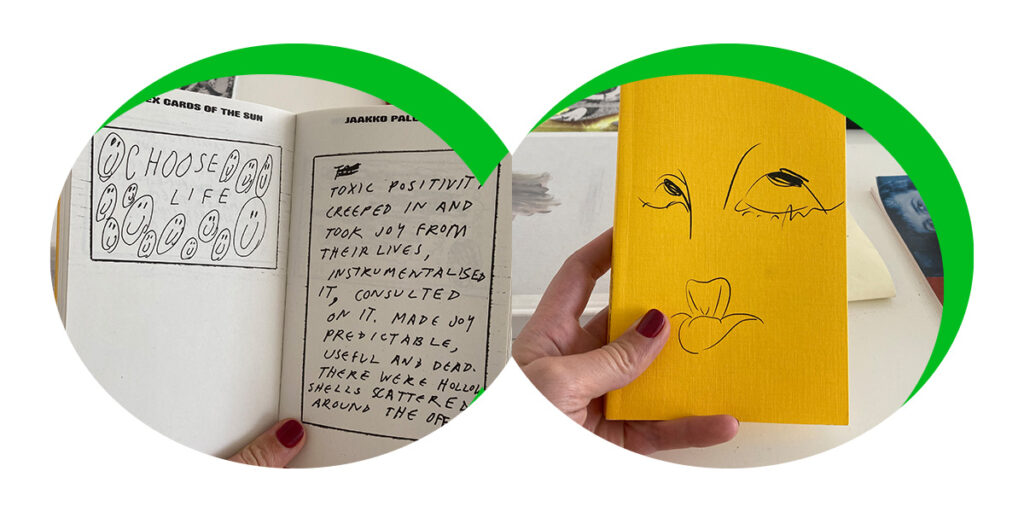 EX CARDS OF THE SUN
CHOOSE
LIFE
JAAKKO PALL
TOXIC POSITIVITY
CREEPED IN AND
TOOK JOY FROM
THEIR LIVES,
INSTRUMENTALISED
IT, CONSULTED
ON IT. MADE JOY
PREDICTABLE,
USEFUL AND DEAD.
THERE WERE HOLLOW
SHELLS SCATTERED
AROUND THE OFF